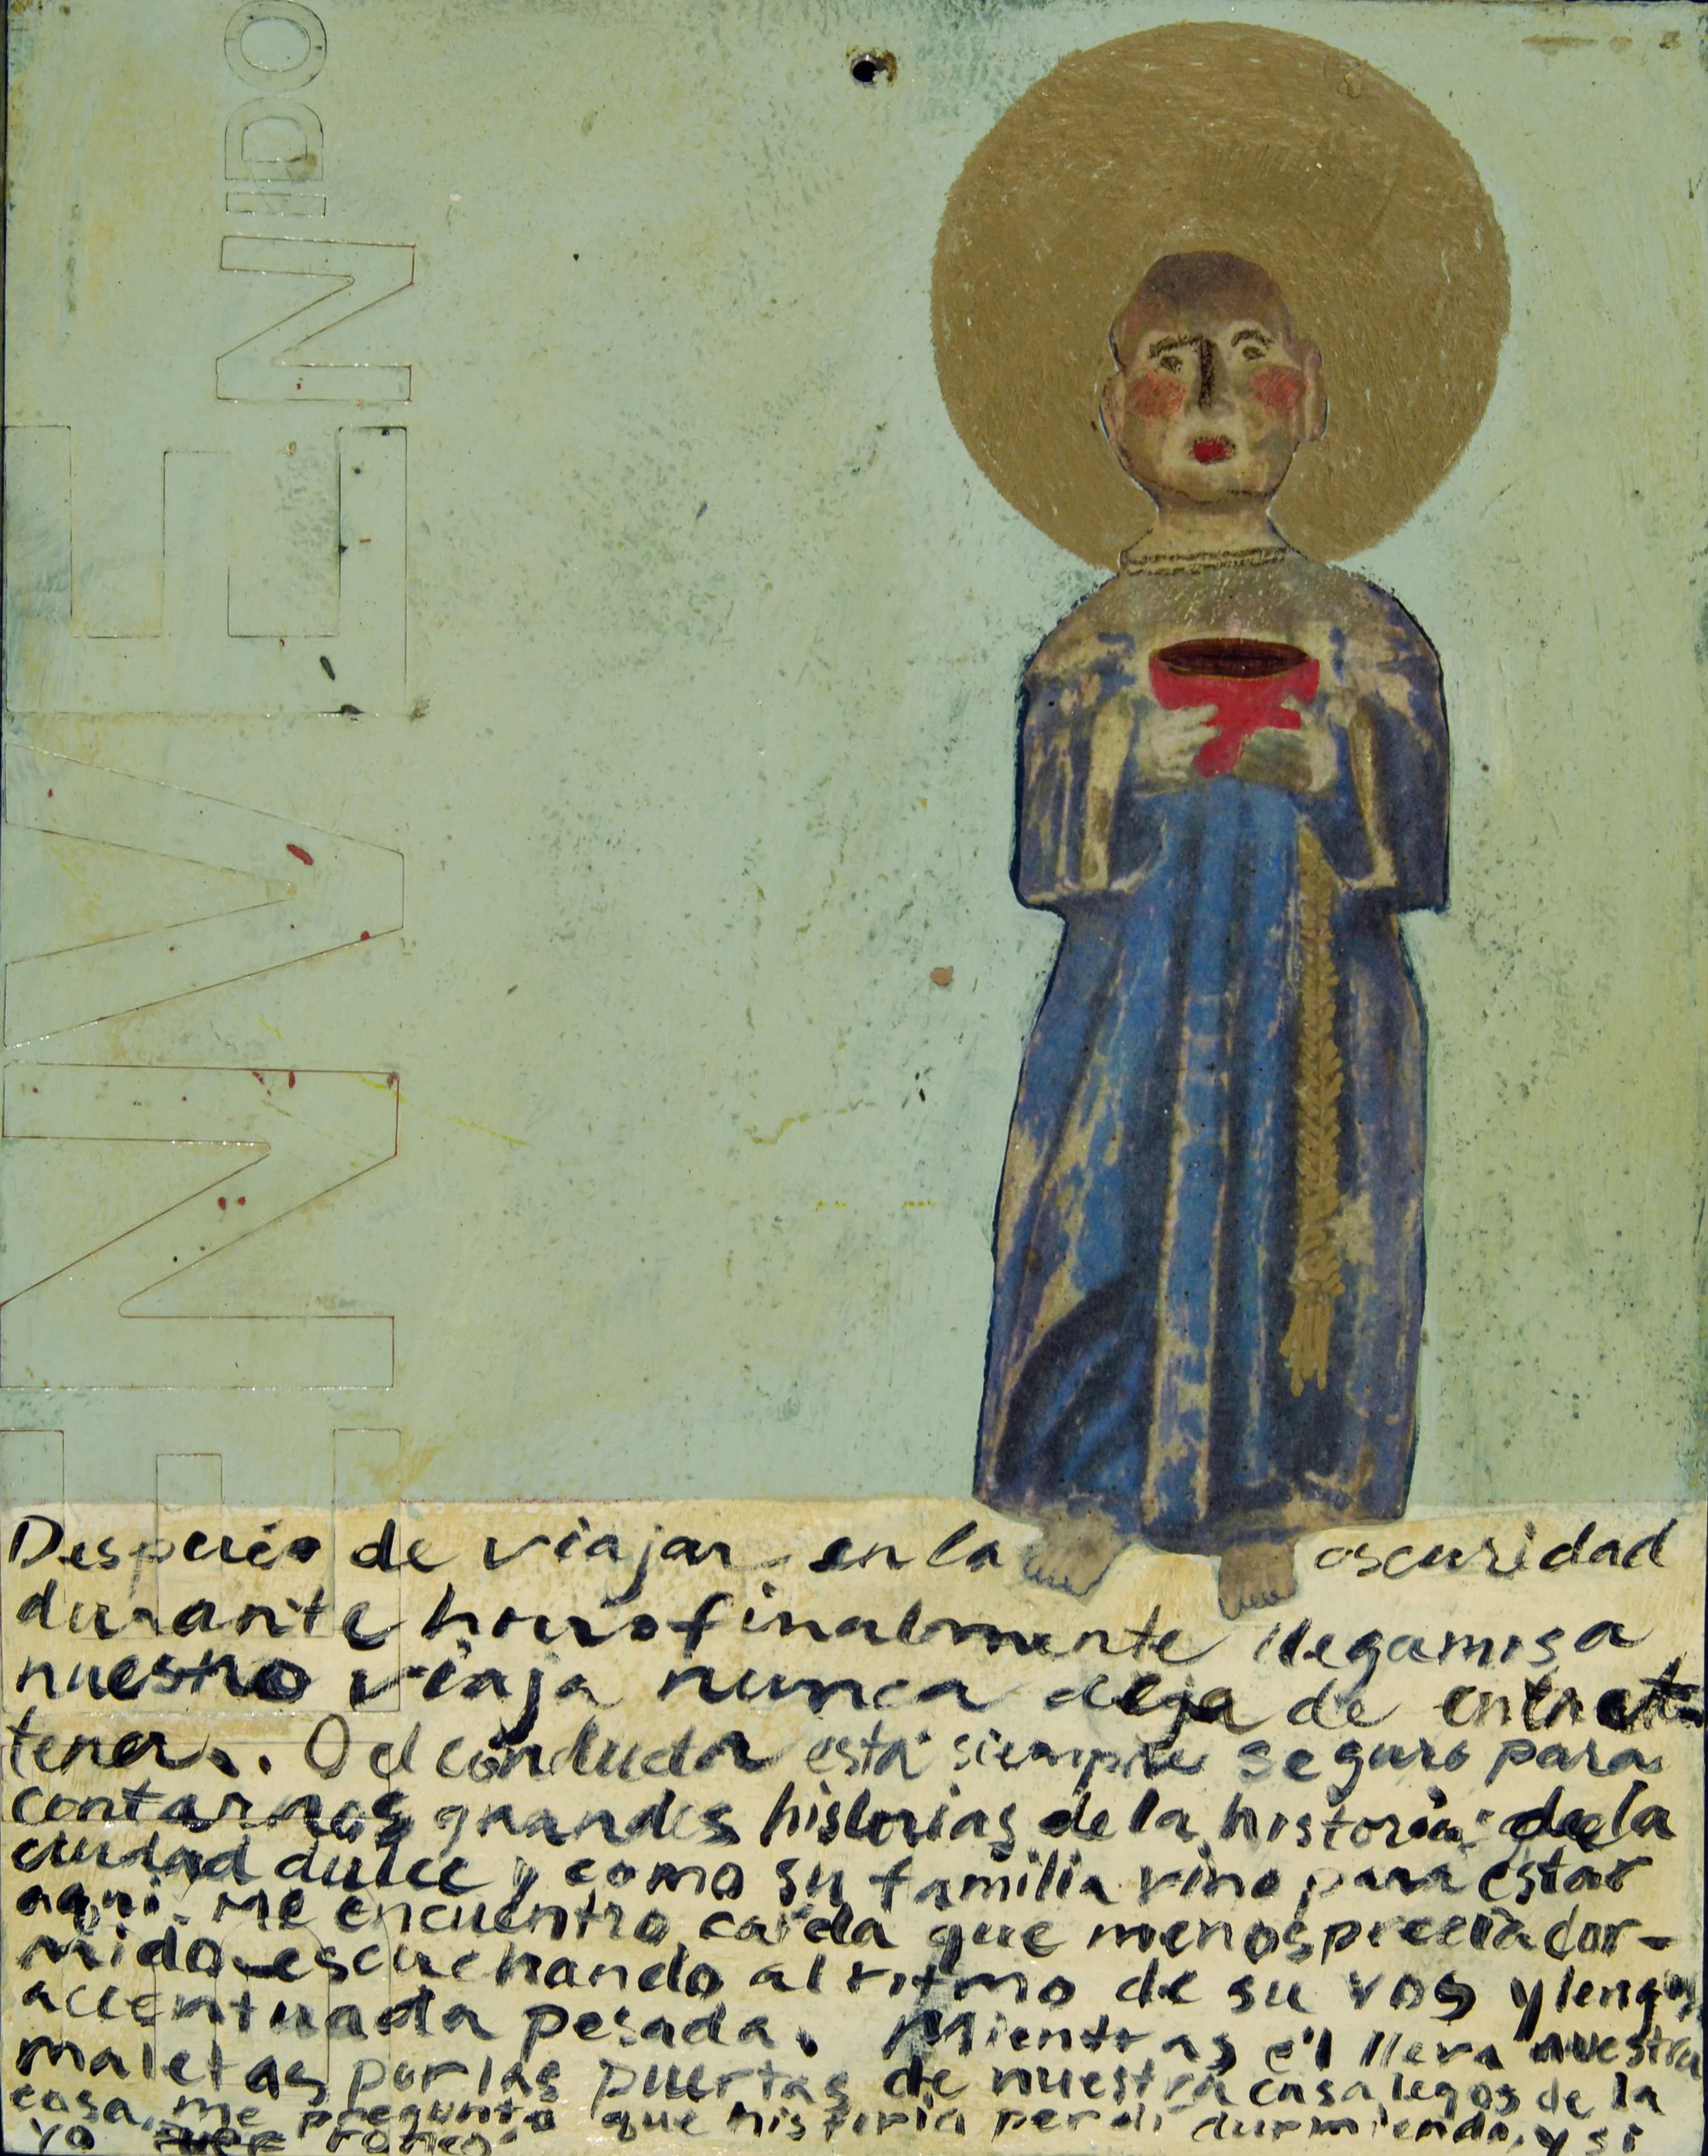 SE VENDO
Despues de viajar en la oscuridad
durante horas finalmente llegamos a
nuestro viaja nunca deja de entret
tener. O el conductor está siempre seguro para
contarnos grandes historias de la historia de la
ciudad dulce y como su familia vino para estar
aqui. Me encuentro cada que menosprecia dor-
mido escuchando al ritmo de su vos y lengua
accentuada pesada. Mientras él lleva nuestra
maletas por las puertas de nuestra casa legos de la
casa, me pregunto que historia perdi durmiendo, y si
yo ronco